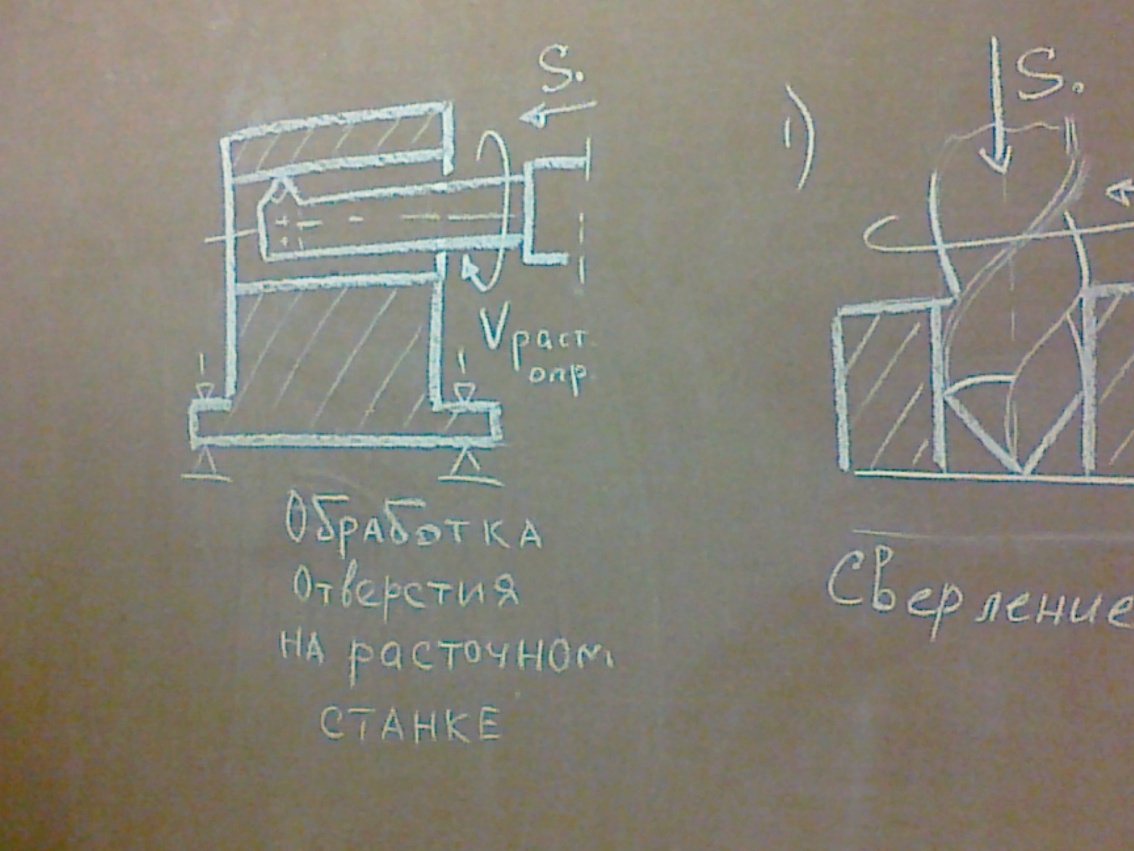 S.
V раст.
опр.
Обработка
отверстия
на расточном
станке
1)
S.
Сверление